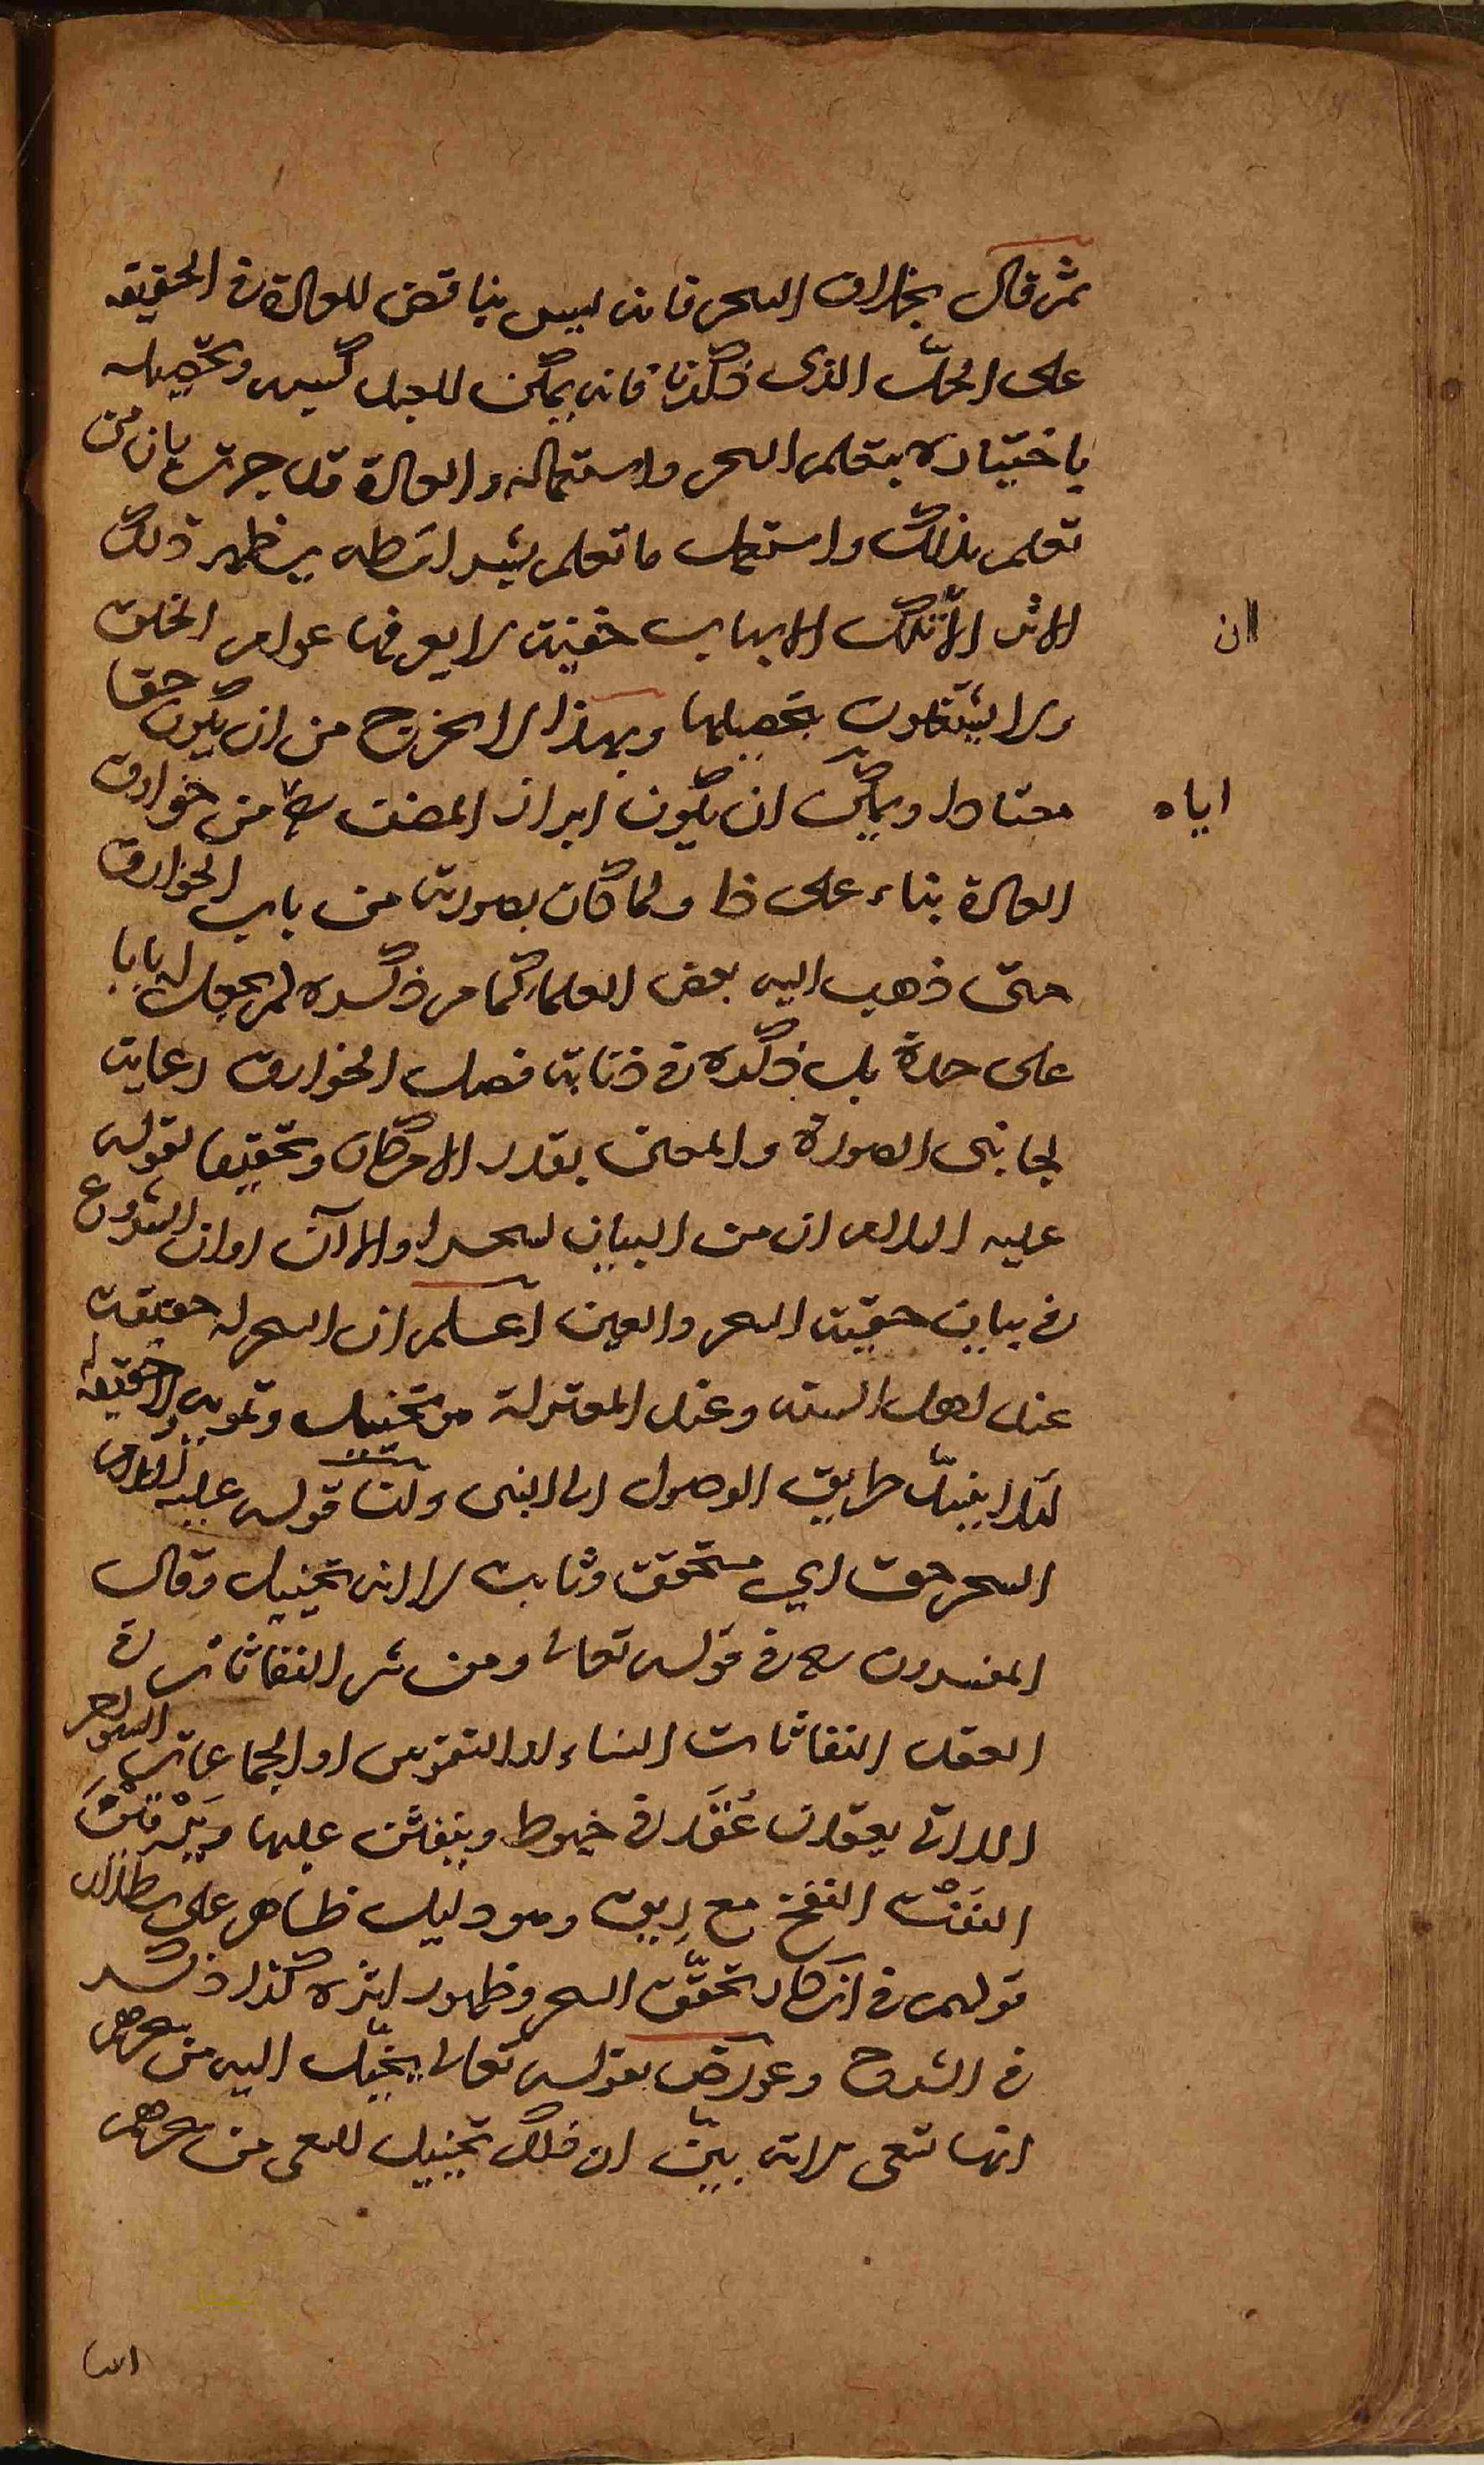 ثم قال بخلاف السحر فانه ليس بناقض للعادة في الحقيقة
على الحدّ الذى ذكرنا فانه يمكن للعبد كسبه وتحصيله
باختياره بتعلم السحر واستعماله والعادة قد جرت بان من
تعلم بذلك واستعمل ما تعلم بشرائطه يظهر ذلك
الاثر الا ان تلك الاسباب خفية لا يعرفها عوام الخلق
ولا يشتغلون بتحصيلها وبهذا لا يخرج من ان يكون حقا
معتادا ويمكن ان يكون ايراد المصنف اياه من خوارق
العادة بناء على ولما كان بصورته من باب الخوارق
حتى ذهب اليه بعض العلماء كما مر ذكره لم يجعل له بابا
على حدة بل ذكره في فصل الخوارق رعاية
لجانبى الصورة والمعنى بقدر الامكان وتحقيقا لقوله
عليه السلام ان من البيان لسحرا والآن اوان الشروع
في بيان حقية السحر والعين اعلم ان السحر له حقيقة
عند اهل السنة وعند المعتزلة هو تخييل وتمويه لا حقيقة له
لئلا ينسدّ طريق الوصول الى النبى ولنا قوله عليه السلام
السحر حق اي متحقق وثابت لا انه تخييل وقال
المفسرون في قوله تعالى ومن شر النفاثات في
العقد النفاثات النساء او النفوس او الجماعات السواحر
اللاتى يعقدن عُقَد في خيوط وينفثن عليها ويَرْقِيْنَ
النَفْث النفخ مع ريق وهو دليل ظاهر على بطلان
قولهم في انكار تحقّق السحر وظهور اثره كذا ذكر
في الشروح وعورض بقوله تعالى يخيّل اليه من سحرهم
انها تسعى لانه بيّن ان ذلك تخييل للسعى من سحرهم
ان
اياه